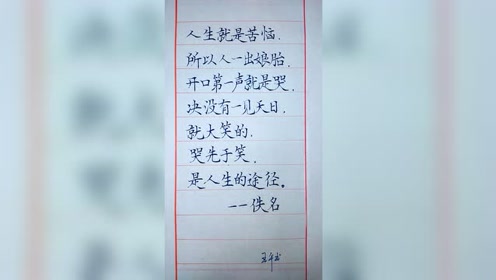 人生就是苦恼.
所以人一出娘胎.
开口第一声就是哭.
决没有一见天日.
就大笑的.
哭先于笑.
是人生的途径。
--佚名